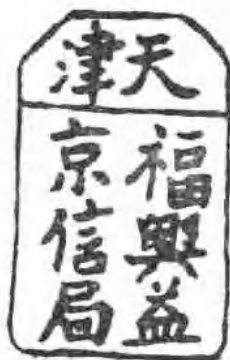 天津
福興益
京信局